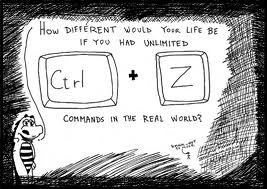 HOW DIFFERENT WOULD YOUR LIFE BE
IF YOU HAD UNLIMITED
Ctrl + Z
COMMANDS IN THE REAL WORLD?